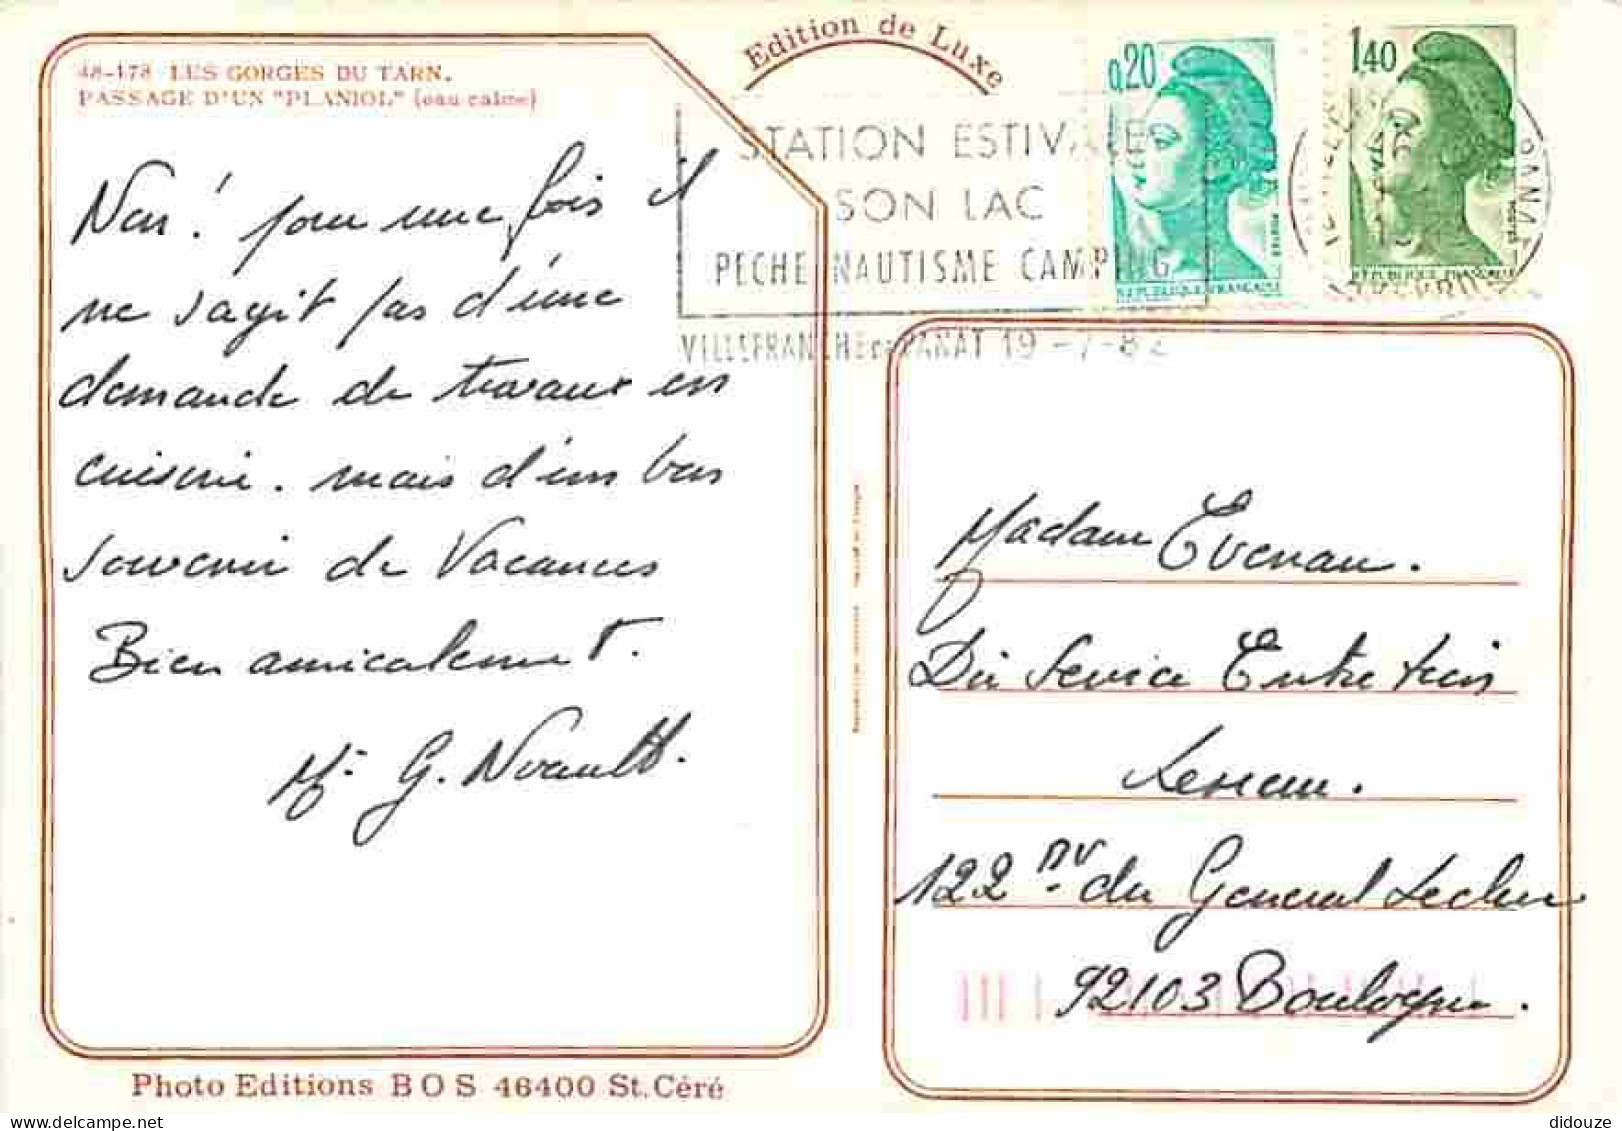 48-178 LES GORGES DU TARN.
PASSAGE D'UN "PLANIOL" (eau calme)
Edition de Luxe
0,20
1,40
STATION ESTIVALE
SON LAC
PECHE NAUTISME CAMPING
REPUBLIQUE FRANÇAISE
REPUBLIQUE FRANÇAISE
VILLEFRANCHE DE PANAT 19 -7-82
Non! pour une fois il
ne s'agit pas d'une
demande de travaux en
cuisine. mais d'un bon
souvenir de Vacances
Bien amicalement.
Mr G.
Madame Evenau.
Service Entretien
122 du General Leclerc
92103 Boulogne.
Photo Editions BOS 46400 St. Céré
didouze